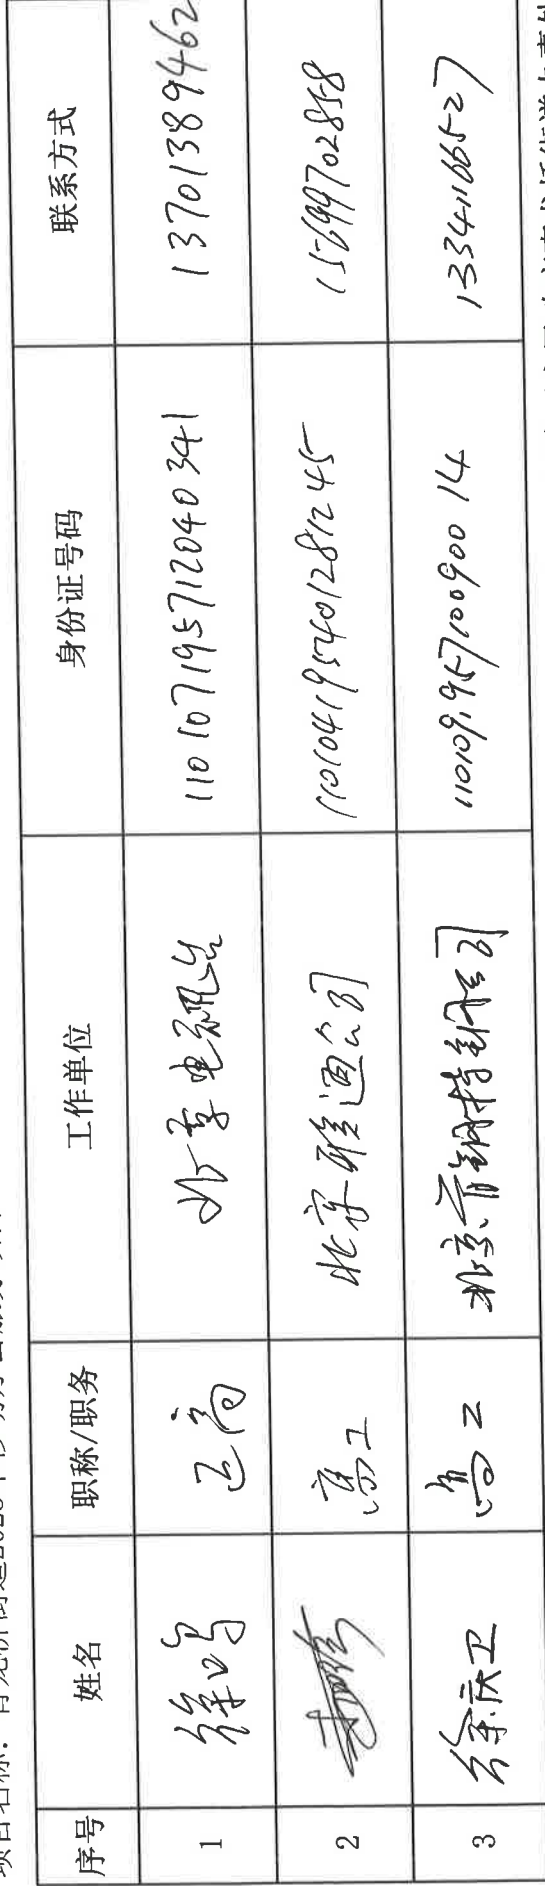 序号 姓名 职称/职务 工作单位 身份证号码 联系方式
1 徐鸣 正高 北京电视台 110107195712040341 13701389462
2 高工 北京 通公司 110104195401281245 15699702858
3 徐庆卫 高工 北京首钢特钢公司 110109195710090014 13341166527